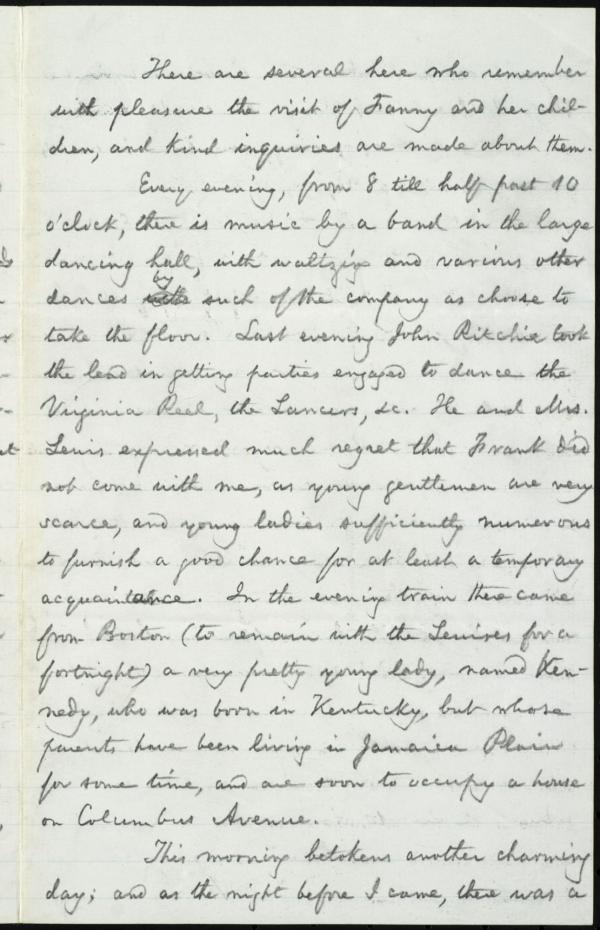 There are several here who remember
with pleasure the visit of Fanny and her chil-
dren, and kind inquiries are made about them.
Every evening, from 8 till half past 10
o'clock, there is music by a band in the large
dancing hall, with waltzing and various other
by
dances such of the company as choose to
take the floor. Last evening John Ritchie took
the lead in getting parties engaged to dance the
Virginia Reel, the Lancers, &c. He and Mrs.
Lewis expressed much regret that Frank did
not come with me, as young gentlemen are very
scarce, and young ladies sufficiently numerous
to furnish a good chance for at least a temporary
acquaintance. In the evening train there came
from Boston (to remain with the Lewises for a
fortnight) a very pretty young lady, named Ken-
nedy, who was born in Kentucky, but whose
parents have been living in Jamaica Plain
for some time, and are soon to occupy a house
on Columbus Avenue.
This morning betokens another charming
day; and as the night before I came, there was a